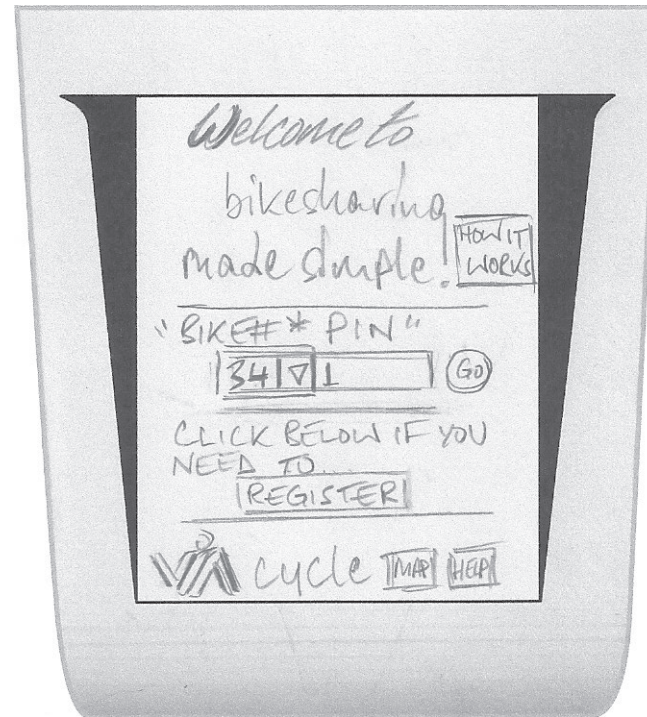 Welcome to
bikesharing
made simple!
HOW IT
WORKS
"BIKE#* PIN"
34 ▽ 1
GO
CLICK BELOW IF YOU
NEED TO...
REGISTER
VIA cycle MAP HELP